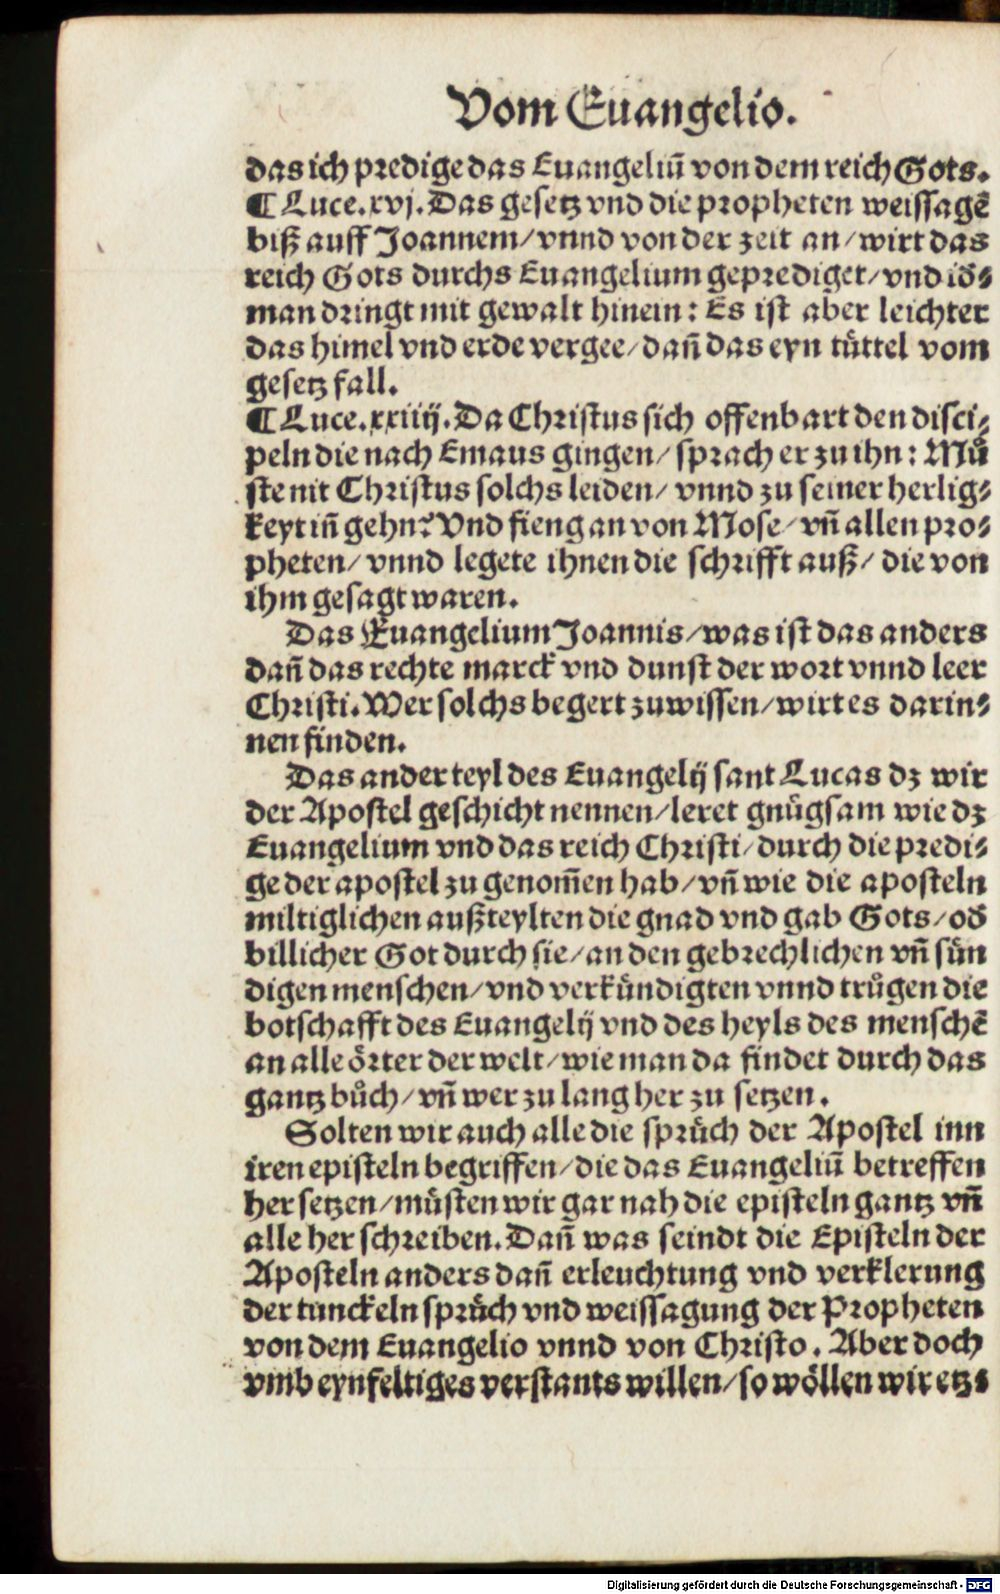 Vom Euangelio.
das ich predige das Euangeliū von dem reich Gots.
¶ Luce.xvj. Das gesetz vnd die propheten weissagē
biß auff Joannem/ vnnd von der zeit an/ wirt das
reich Gots durchs Euangelium geprediget/ vnd id̄⸗
man dringt mit gewalt hinein: Es ist aber leichter
das himel vnd erde vergee/ dañ das eyn tüttel vom
gesetz fall.
¶ Luce.xxiiij. Da Christus sich offenbart den disci⸗
peln die nach Emaus gingen/ sprach er zu ihn: Mů
ste nit Christus solchs leiden/ vnnd zu seiner herlig⸗
keyt iñ gehn? Vnd fieng an von Mose/ vñ allen pro⸗
pheten/ vnnd legete ihnen die schrifft auß/ die von
ihm gesagt waren.
Das Euangelium Joannis/ was ist das anders
dañ das rechte marck vnd dunst der wort vnnd leer
Christi. Wer solchs begert zuwissen/ wirt es darin⸗
nen finden.
Das ander teyl des Euangelij sant Lucas dz wir
der Apostel geschicht nennen/ leret gnůgsam wie dz
Euangelium vnd das reich Christi/ durch die predi⸗
ge der apostel zu genom̄en hab/ vñ wie die aposteln
miltiglichen außteylten die gnad vnd gab Gots/ od̄
billicher Got durch sie/ an den gebrechlichen vñ sün
digen menschen/ vnd verkündigten vnnd trůgen die
botschafft des Euangelij vnd des heyls des menschē
an alle örter der welt/ wie man da findet durch das
gantz bůch/ vñ wer zu lang her zu setzen.
Solten wir auch alle die sprüch der Apostel inn
iren episteln begriffen/ die das Euangeliū betreffen
her setzen/ müsten wir gar nah die episteln gantz vñ
alle her schreiben. Dañ was seindt die Episteln der
Aposteln anders dañ erleuchtung vnd verklerung
der tunckeln sprüch vnd weissagung der Propheten
von dem Euangelio vnnd von Christo. Aber doch
vmb eynfeltiges verstants willen/ so wöllen wir etz⸗
Digitalisierung gefördert durch die Deutsche Forschungsgemeinschaft - DFG